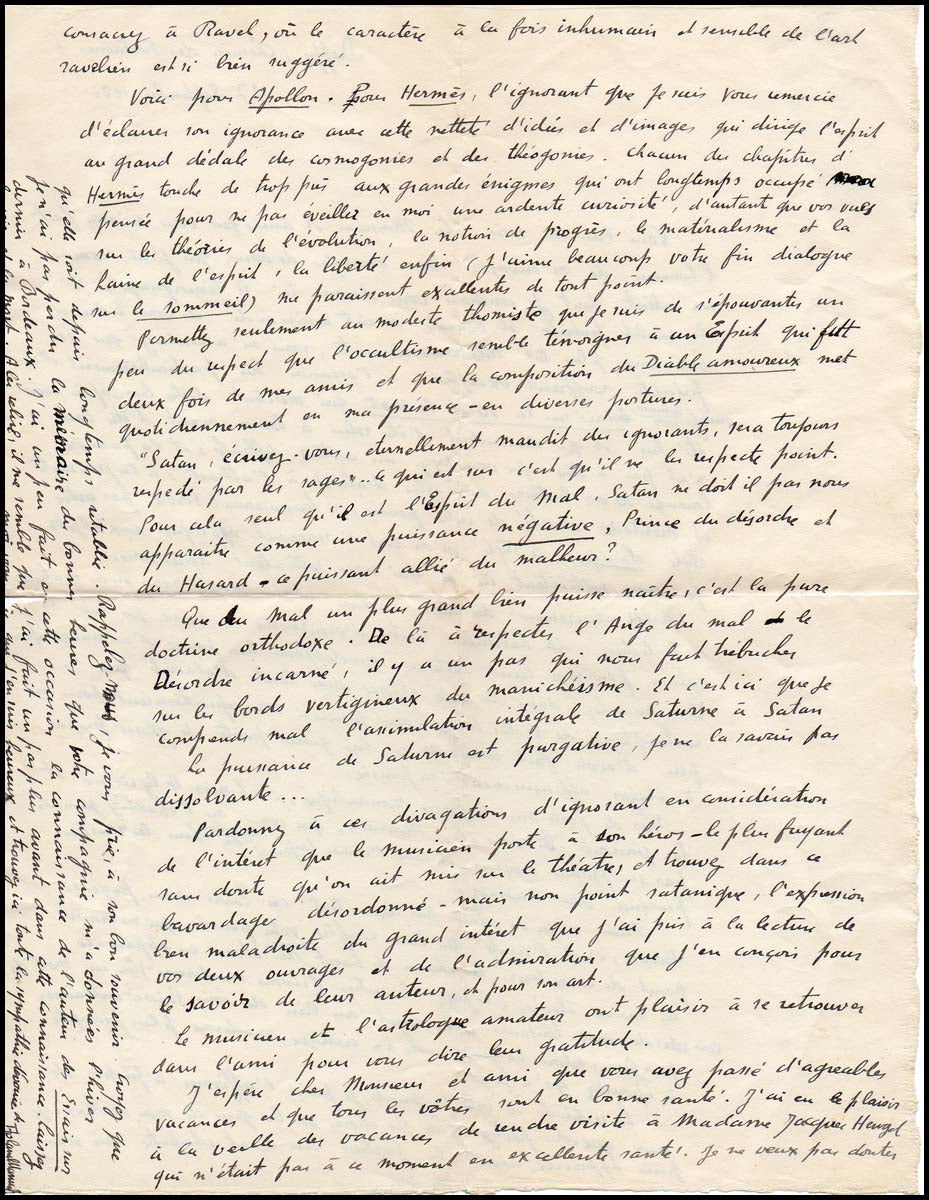 consacrez à Ravel, où le caractère à la fois inhumain et sensible de l'art
ravelien est si bien suggéré.
Voici pour Apollon. Pour Hermès, l'ignorant que je suis vous remercie
d'éclairer son ignorance avec cette netteté d'idées et d'images qui dirige l'esprit
au grand dédale des cosmogonies et des théogonies. Chacun des chapitres d'
Hermès touche de trop près aux grandes énigmes qui ont longtemps occupé
pensée pour ne pas éveiller en moi une ardente curiosité, d'autant que vos vues
sur les théories de l'évolution, la notion de progrès, le matérialisme et la
haine de l'esprit, la liberté enfin (j'aime beaucoup votre fin dialogue
sur le sommeil) me paraissent excellentes de tout point.
Permettez seulement au modeste thomiste que je suis de s'épouvanter un
peu du respect que l'occultisme semble témoigner à un Esprit qui fut
deux fois de mes amis et que la composition du Diable amoureux met
quotidiennement en ma présence - en diverses postures.
"Satan, écrivez-vous, éternellement maudit des ignorants, sera toujours
respecté par les sages"... ce qui est sur c'est qu'il ne les respecte point.
Pour cela seul qu'il est l'Esprit du Mal, Satan ne doit il pas nous
apparaitre comme une puissance négative, Prince du désordre et
du Hasard - ce puissant allié du malheur?
Que du mal un plus grand bien puisse naître, c'est la pure
doctrine orthodoxe. De là à respecter l'Ange du mal le
Désordre incarné, il y a un pas qui nous fait trébucher
sur les bords vertigineux du manichéisme. Et c'est ici que je
comprends mal l'assimilation intégrale de Saturne à Satan
La puissance de Saturne est purgative, je ne la savais pas
dissolvante...
Pardonnez à ces divagations d'ignorant en considération
de l'intérêt que le musicien porte à son héros - le plus fuyant
sans doute qu'on ait mis sur le théâtre, et trouvez dans ce
bavardage désordonné - mais non point satanique, l'expression
bien maladroite du grand intérêt que j'ai pris à la lecture de
vos deux ouvrages et de l'admiration que j'en conçois pour
le savoir de leur auteur, et pour son art.
Le musicien et l'astrologue amateur ont plaisir à se retrouver
dans l'ami pour vous dire leur gratitude.
J'espère cher Monsieur et ami que vous avez passé d'agréables
vacances et que tous les vôtres sont en bonne santé. J'ai eu le plaisir
à la veille des vacances de rendre visite à Madame Jacques Heugel
qui n'était pas à ce moment en excellente santé. Je ne veux pas douter
qu'elle soit depuis longtemps rétablie. Rappelez-moi, je vous prie, à son bon souvenir. Croyez que
je n'ai pas perdu la mémoire des bonnes heures que votre compagnie m'a données l'hiver
dernier à Bordeaux. J'ai un peu fait en cette occasion la connaissance de l'auteur des Essais sur
la mort. A les relire, il me semble que j'ai fait un pas plus avant dans cette connaissance. Laissez
moi vous que j'en suis heureux et trouvez ici toute la sympathie dévouée de